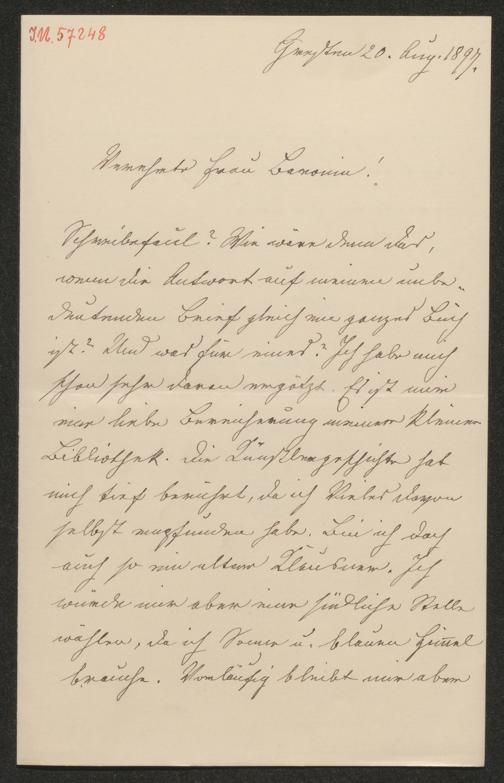 I.N. 57248
Gresten 20. Aug. 1897.
Verehrte Frau Baronin!
Schreibefaul? Wie wäre denn das,
wenn die Antwort auf meinen unbe-
deutenden Brief gleich ein ganzes Buch
ist? Und was für eines? Ich habe mich
schon sehr daran ergötzt. Es ist mir
eine liebe Bereicherung meiner kleinen
Bibliothek. Die Künstlergeschichte hat
mich tief berührt, da ich Vieles davon
selbst empfunden habe. Bin ich doch
auch so ein alter Klausner. Ich
würde mir aber eine südliche Stelle
wählen, da ich Sonne u. blauen Himmel
brauche. Vorläufig bleibt mir aber